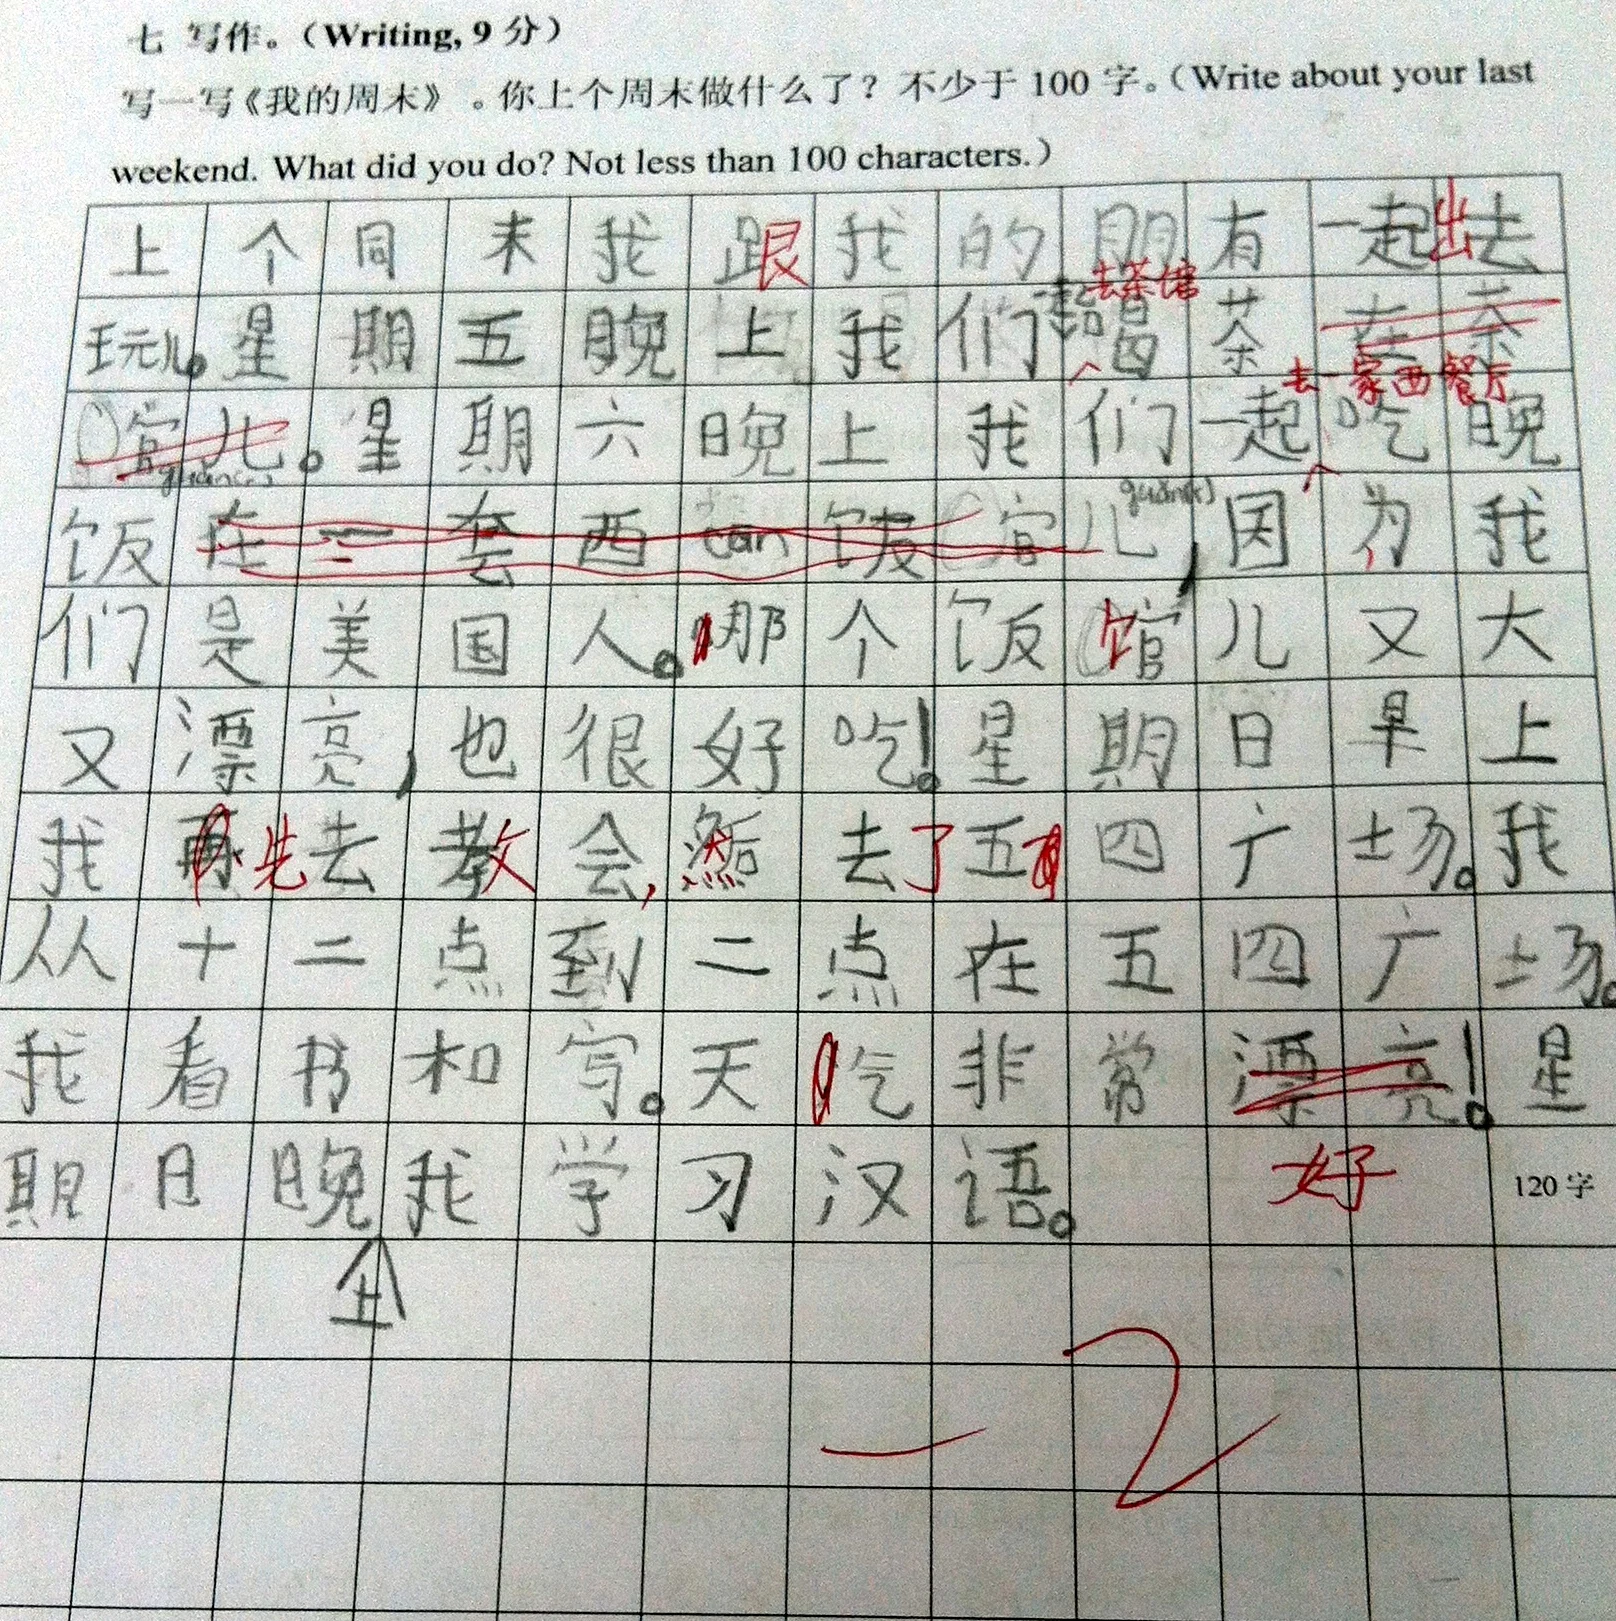 七 写作。（Writing, 9 分）
写一写《我的周末》。你上个周末做什么了？不少于 100 字。（Write about your last
weekend. What did you do? Not less than 100 characters.）
上个同末我跟我的朋有一起出去
去茶馆
玩儿。星期五晚上我们喝茶在茶
去一家西餐厅
馆儿。星期六晚上我们一起吃晚
guǎn(r) guǎn(r)
饭在一套西can饭馆儿，因为我
们是美国人。那个饭馆儿又大
又漂亮，也很好吃！星期日早上
我再先去教会，然后去了五四广场。我
从十二点到二点在五四广场。
我看书和写。天吃非常漂亮！星
好
期日晚我学习汉语。
120 字
上
－2